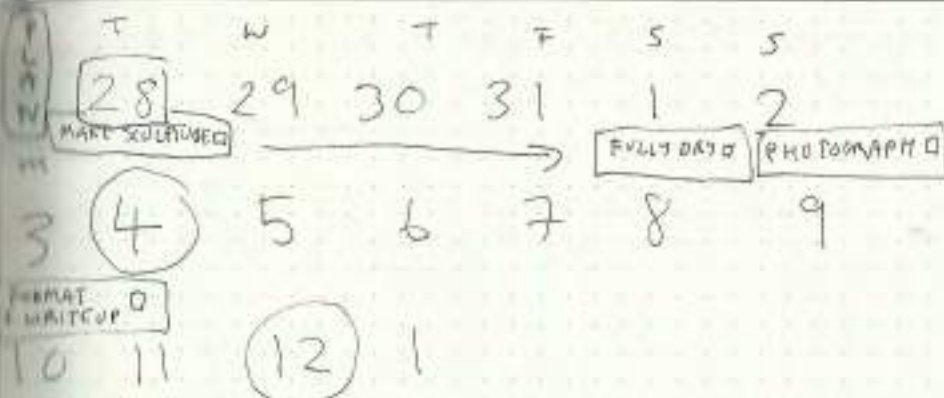 PLAN
T W T F S S
28 29 30 31 1 2
MAKE SCULPTURE FULLY DRY PHOTOGRAPH
M
3 4 5 6 7 8 9
FORMAT
+ WRITEUP
10 11 12 1